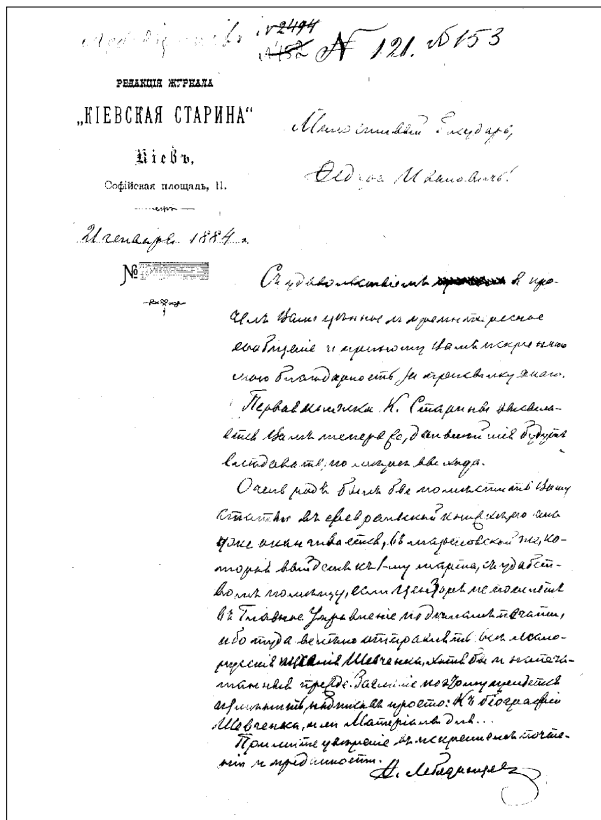 № 2494
№ 482 № 121. № 153
РЕДАКЦІЯ ЖУРНАЛА
„КІЕВСКАЯ СТАРИНА“
Кіевъ,
Софійская площадь, 11.
Милостивый Государь,
Ѳедоръ Ивановичъ!
21 генваря 1884 г.
№
Съ удовольствіемъ я про-
челъ Ваше цѣнное и интересное
сообщеніе и приношу Вамъ искреннюю
мою благодарность за присылку онаго.
Первая книжка К. Старины
Вамъ теперь же, дальнѣйшія будутъ
по мѣрѣ выхода.
Очень радъ былъ бы помѣстить Вашу
статью въ февральской книжкѣ, но она
уже оканчивается, въ мартовской же, ко-
торая выйдетъ къ 1-му марта, съ удоволь-
ствіемъ помѣщу, если цензоръ не пошлетъ
въ Главное Управленіе по дѣламъ печати,
ибо туда велѣно отправлять всѣ мало-
русскія Шевченка, хотя бы и напеча-
танныя прежде. Заглавіе по-моему придется
измѣнить, надписавъ просто: Къ біографіи
Шевченка, или Матеріалъ для...
Примите увѣреніе въ искреннемъ почте-
ніи и преданности.
Лебединцев